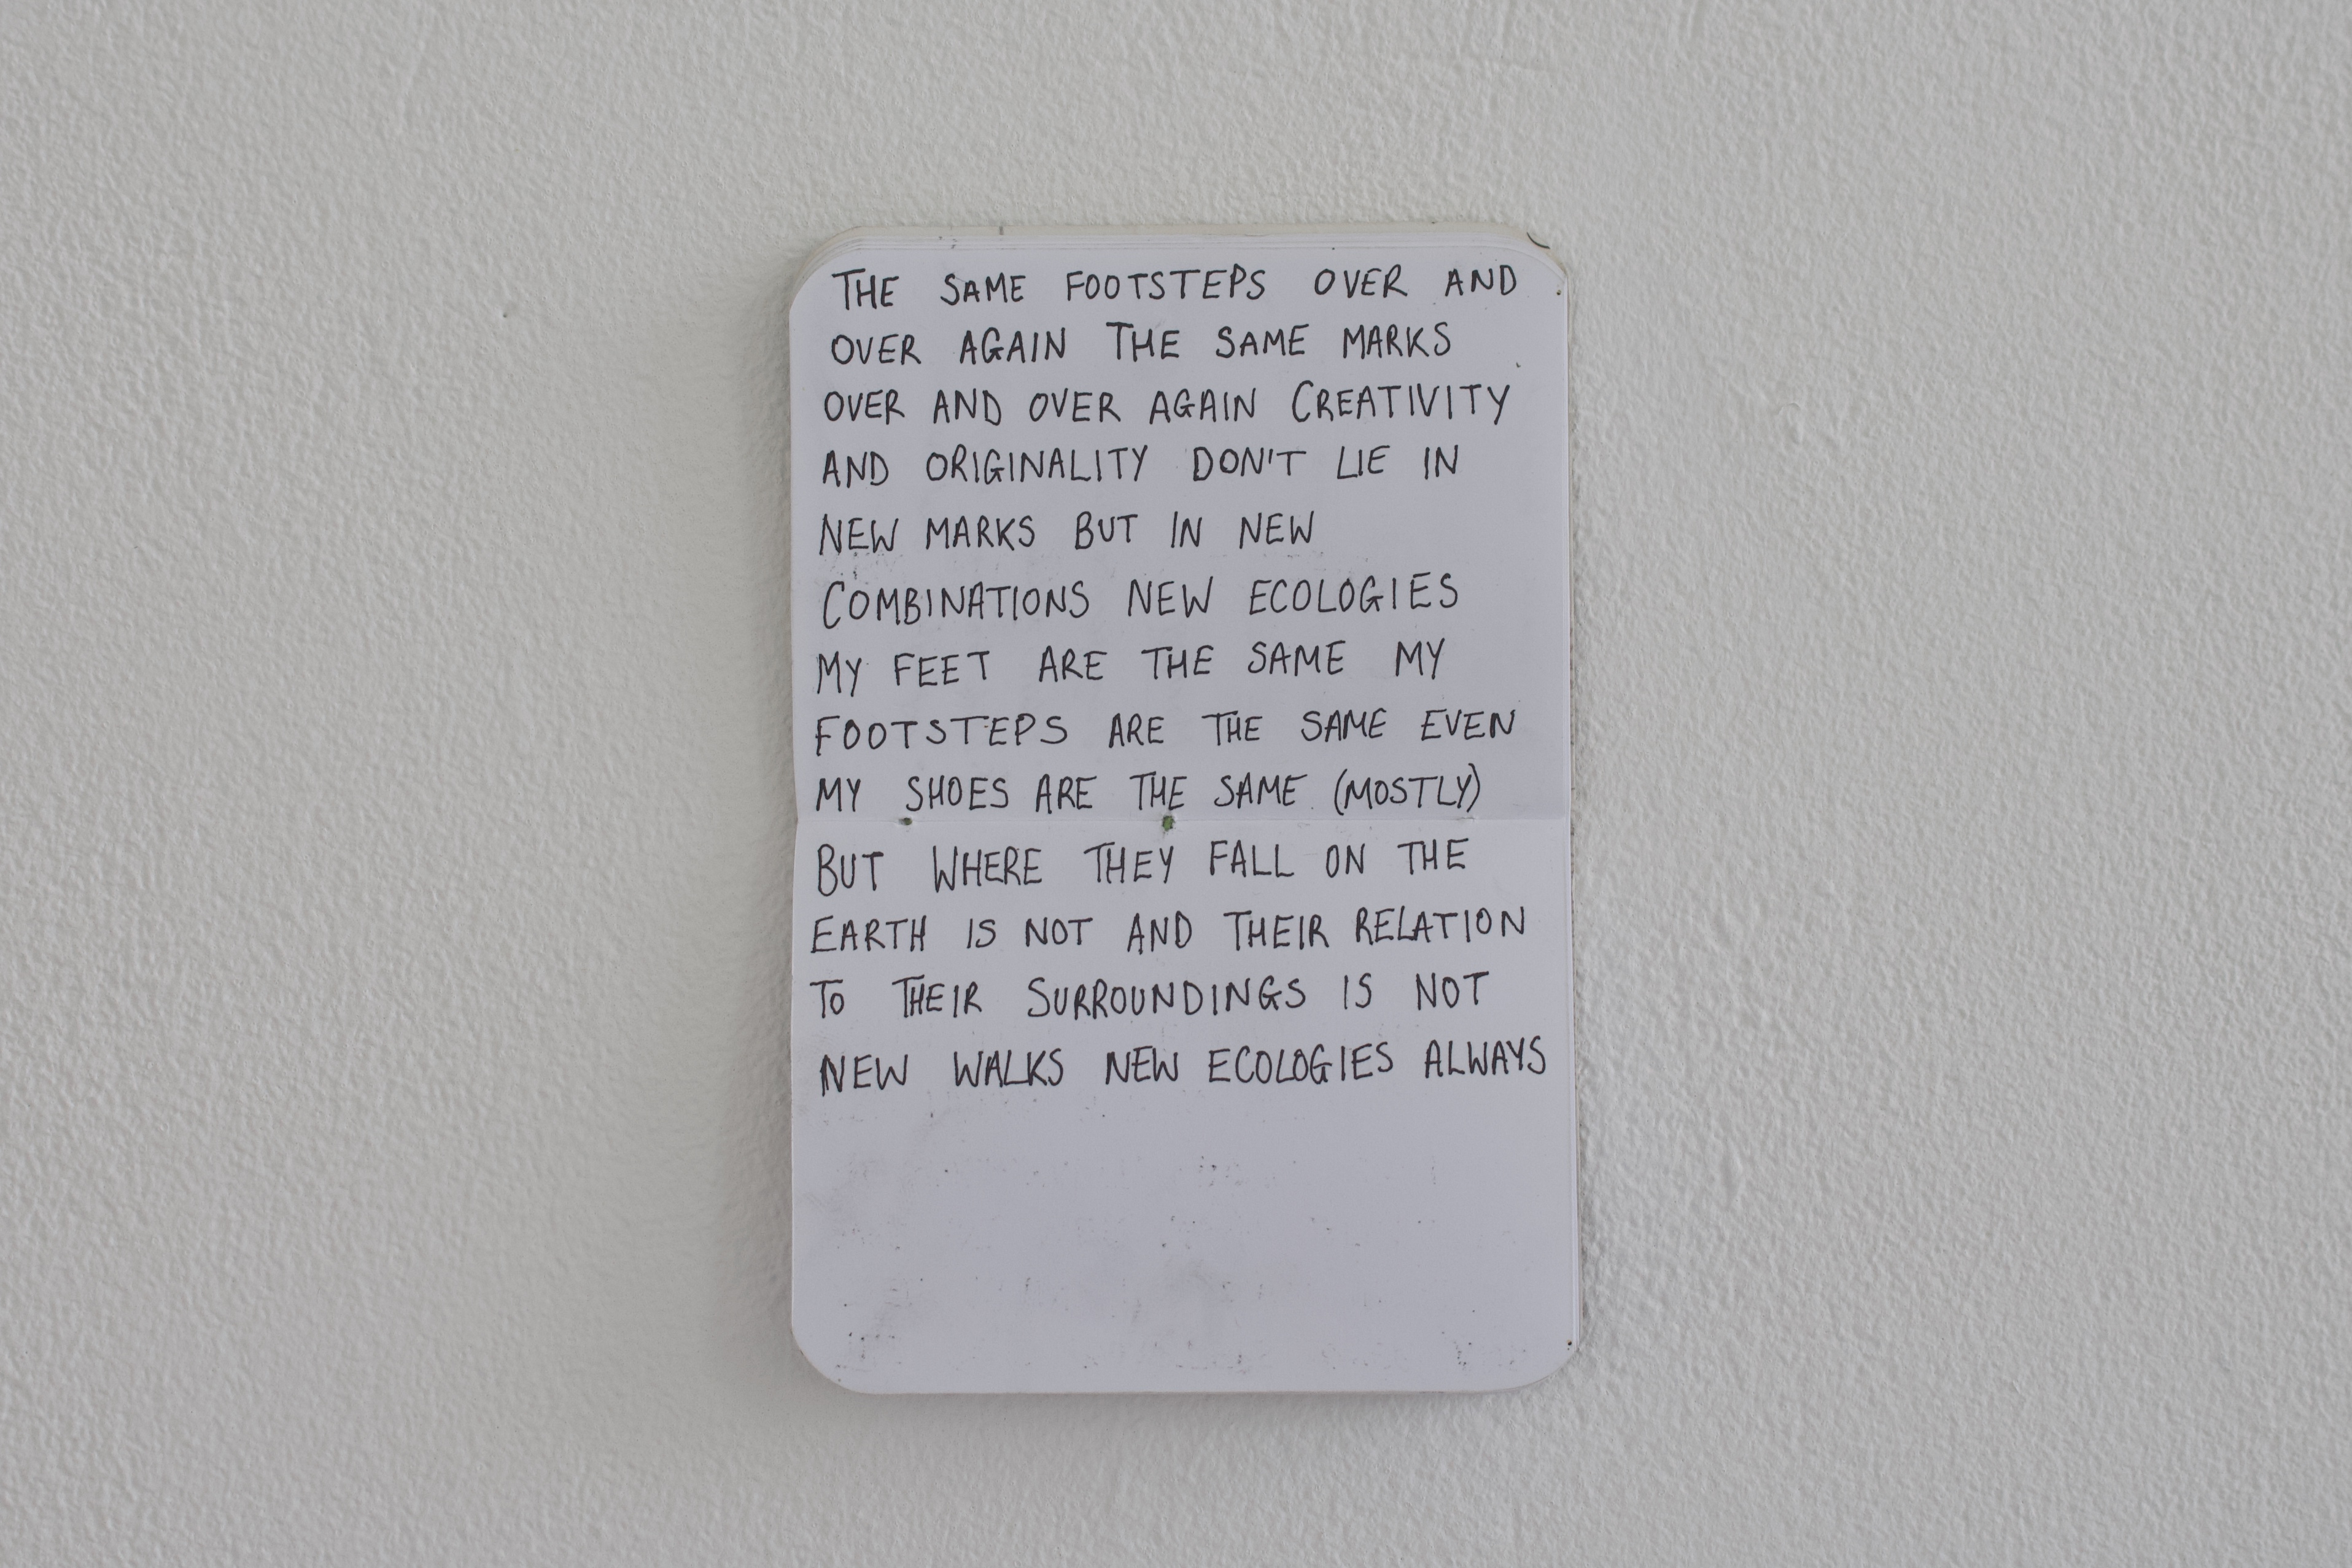 THE SAME FOOTSTEPS OVER AND
OVER AGAIN THE SAME MARKS
OVER AND OVER AGAIN CREATIVITY
AND ORIGINALITY DON'T LIE IN
NEW MARKS BUT IN NEW
COMBINATIONS NEW ECOLOGIES
MY FEET ARE THE SAME MY
FOOTSTEPS ARE THE SAME EVEN
MY SHOES ARE THE SAME (MOSTLY)
BUT WHERE THEY FALL ON THE
EARTH IS NOT AND THEIR RELATION
TO THEIR SURROUNDINGS IS NOT
NEW WALKS NEW ECOLOGIES ALWAYS